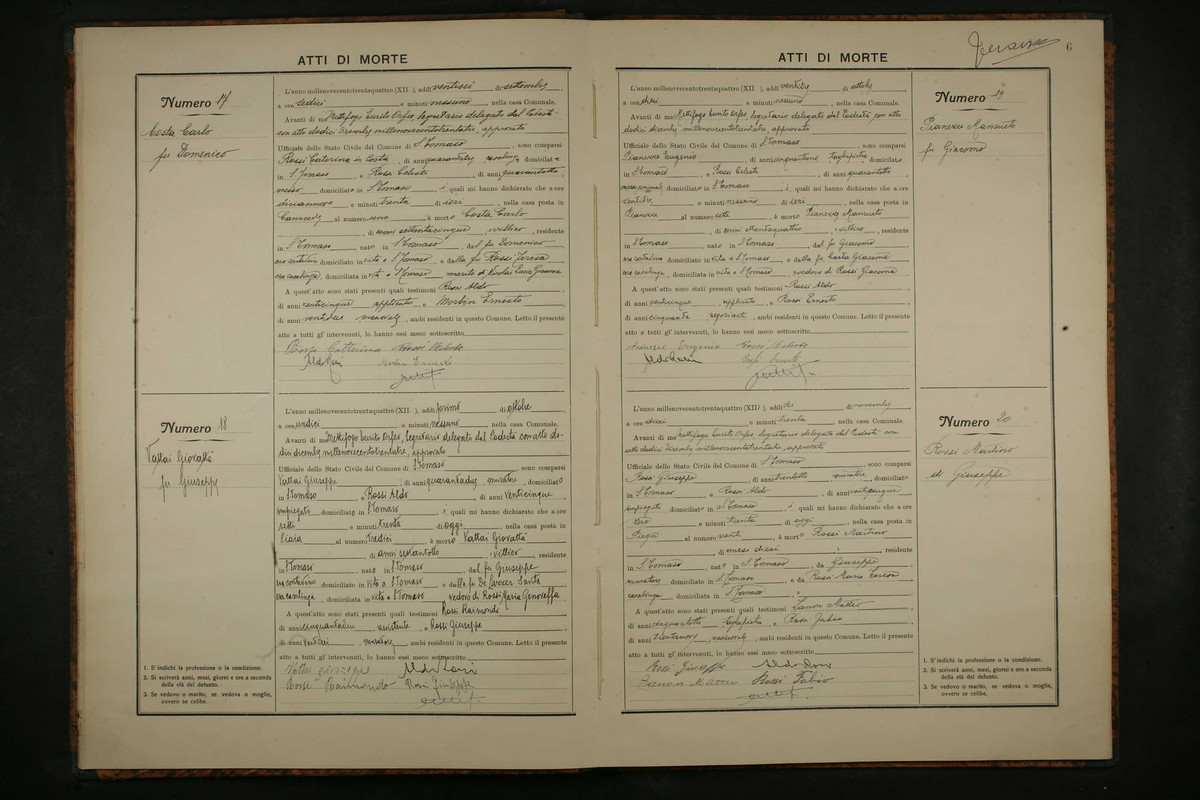 ATTI DI MORTE
Numero 17
Costa Carlo
fu Domenico
L'anno millenovecentotrentaquattro (XII ), addì ventisei di settembre,
a ore sedici e minuti nessuno, nella casa Comunale.
Avanti di me Mettifogo Eurito Orfeo, Segretario delegato dal Podestà
con atto dodici dicembre millenovecentotrentatre, approvato
Ufficiale dello Stato Civile del Comune di S. Tomaso, sono comparsi
Rossi Caterina in Costa, di anni quarantatre, casalinga domiciliata
in S. Tomaso, e Rossi Celeste di anni quarantotto,
messo domiciliato in S. Tomaso i quali mi hanno dichiarato che a ore
diciannove e minuti trenta di ieri, nella casa posta in
al numero uno, è morto Costa Carlo
, di anni settantacinque, residente
in S. Tomaso, nato in S. Tomaso, dal fu Domenico
era contadino domiciliato in vita a S. Tomaso, e dalla fu Rossi Teresa
era casalinga, domiciliata in vita a S. Tomaso marito di
A quest'atto sono stati presenti quali testimoni Rossi Aldo
di anni venticinque applicato, e Morbin Ernesto
di anni, ambi residenti in questo Comune. Letto il presente
atto a tutti gl' intervenuti, lo hanno essi meco sottoscritto
Aldo Rossi Morbin Ernesto
Numero 18
Vallai Giovanni
fu Giuseppe
L'anno millenovecentotrentaquattro (XII ), addì primo di ottobre,
a ore undici e minuti nessuno, nella casa Comunale.
Avanti di me Mettifogo Eurito Orfeo, Segretario delegato dal Podestà con atto do-
dici dicembre millenovecentotrentatre, approvato
Ufficiale dello Stato Civile del Comune di S. Tomaso, sono comparsi
Vallai Giuseppe, di anni quarantadue, muratore, domiciliato
in S. Tomaso, e Rossi Aldo di anni venticinque
impiegato domiciliato in S. Tomaso, i quali mi hanno dichiarato che a ore
sette e minuti trenta di oggi, nella casa posta in
al numero tredici, è morto Vallai
, di anni, residente
in S. Tomaso, nato in S. Tomaso, dal fu Giuseppe
era contadino domiciliato in vita a S. Tomaso e dalla fu Santa
era casalinga, domiciliata in vita a S. Tomaso vedovo di Rossi Maria Genoveffa
A quest'atto sono stati presenti quali testimoni Rossi Raimondo
di anni cinquantadue, assistente, e Rossi Giuseppe
di anni, muratore, ambi residenti in questo Comune. Letto il presente
atto a tutti gl' intervenuti, lo hanno essi meco sottoscritto
Giuseppe Aldo Rossi
Rossi Raimondo Rossi Giuseppe
1. S' indichi la professione o la condizione.
2. Si scriverà anni, mesi, giorni e ore a seconda
della età del defunto.
3. Se vedovo o marito, se vedova o moglie,
ovvero se celibe.
6
ATTI DI MORTE
Numero 19
Pianezze Mansueto
fu Giacomo
L'anno millenovecentotrentaquattro (XII ), addì ventitre di ottobre,
a ore dieci e minuti nessuno, nella casa Comunale.
Avanti di me Mettifogo Eurito Orfeo, segretario delegato dal Podestà con atto
dodici dicembre millenovecentotrentatre, approvato
Ufficiale dello Stato Civile del Comune di S. Tomaso, sono comparsi
Pianezze Eugenio, di anni cinquantuno tagliapietra, domiciliato
in S. Tomaso, e Rossi Celeste di anni quarantotto,
messo comunale domiciliato in S. Tomaso, i quali mi hanno dichiarato che a ore
ventitre e minuti nessuno di ieri, nella casa posta in
Pianezze al numero sette, è morto Pianezze Mansueto
, di anni, residente
in S. Tomaso nato in S. Tomaso, dal fu Giacomo
era contadino domiciliato in vita a S. Tomaso, e dalla fu Costa Giacoma
era casalinga, domiciliata in vita a S. Tomaso, vedovo di Rossi Giacoma
A quest'atto sono stati presenti quali testimoni Rossi Aldo
di anni venticinque, applicato e Rossi Ernesto
di anni cinquanta, ambi residenti in questo Comune. Letto il presente
atto a tutti gl' intervenuti, lo hanno essi meco sottoscritto
Pianezze Eugenio
Aldo Rossi Rossi Ernesto
Numero 20
Rossi Martino
di Giuseppe
L'anno millenovecentotrentaquattro (XIII ), addì tre di novembre,
a ore dieci e minuti trenta, nella casa Comunale.
Avanti di me Mettifogo Eurito Orfeo, Segretario delegato dal Podestà con
atto dodici dicembre millenovecentotrentatre, approvato
Ufficiale dello Stato Civile del Comune di S. Tomaso, sono comparsi
Rossi Giuseppe, di anni trentotto muratore, domiciliato
in S. Tomaso, e Rossi Aldo, di anni venticinque
impiegato domiciliato in S. Tomaso, i quali mi hanno dichiarato che a ore
e minuti trenta di oggi, nella casa posta in
Piegn al numero venti, è morto Rossi Martino
, di mesi dieci, residente
in S. Tomaso, nato in S. Tomaso, da Giuseppe
muratore domiciliato in S. Tomaso, e da Rossi Maria
casalinga, domiciliata in S. Tomaso
A quest'atto sono stati presenti quali testimoni Zanon Matteo
di anni cinquantotto tagliapietra, e Rossi Fabio
di anni trentanove, ambi residenti in questo Comune. Letto il presente
atto a tutti gl' intervenuti, lo hanno essi meco sottoscritto
Rossi Giuseppe Aldo Rossi
Zanon Matteo Rossi Fabio
1. S' indichi la professione o la condizione.
2. Si scriverà anni, mesi, giorni e ore a seconda
della età del defunto.
3. Se vedovo o marito, se vedova o moglie,
ovvero se celibe.